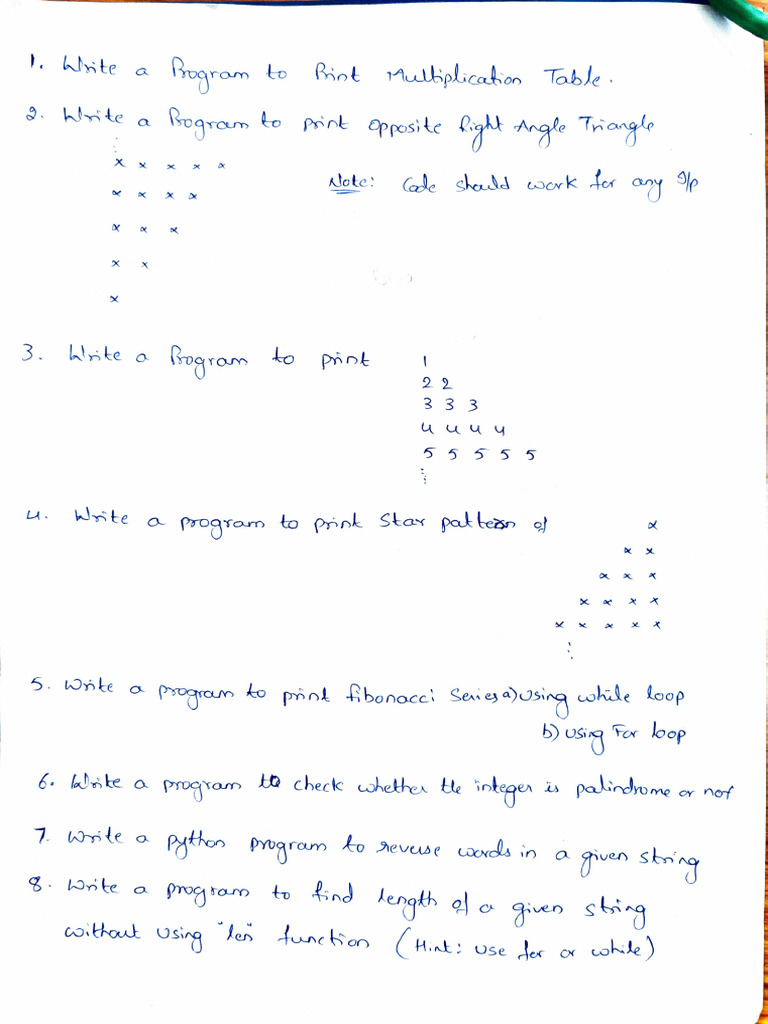 1. Write a Program to Print Multiplication Table.
2. Write a Program to print opposite Right Angle Triangle
⋮
x x x x x
Note: Code should work for any I/p
x x x x
x x x
x x
x
3. Write a Program to print
1
2 2
3 3 3
4 4 4 4
5 5 5 5 5
⋮
4. Write a program to print Star pattern of
x
x x
x x x
x x x x
x x x x x
⋮
5. Write a program to print fibonacci Series a) Using while loop
b) Using For loop
6. Write a program to check whether the integer is palindrome or not
7. Write a python program to reverse words in a given string
8. Write a program to find length of a given string
without using "len" function (Hint: use for or while)